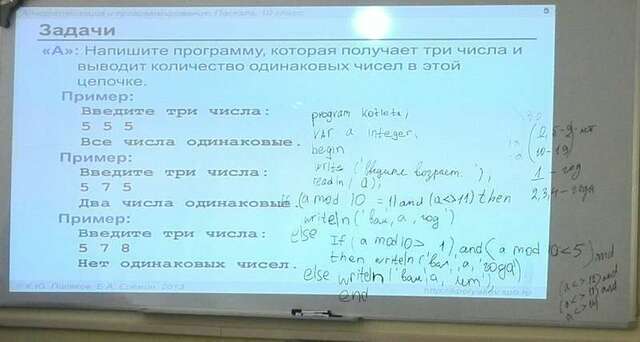 Алгоритмизация и программирование, Паскаль, 10 класс
5
Задачи
«A»: Напишите программу, которая получает три числа и
выводит количество одинаковых чисел в этой
цепочке.
Пример:
Введите три числа:
5 5 5
Все числа одинаковые.
Пример:
Введите три числа:
5 7 5
Два числа одинаковые.
Пример:
Введите три числа:
5 7 8
Нет одинаковых чисел.
© К.Ю. Поляков, Е.А. Ерёмин, 2013
http://kpolyakov.spb.ru
program kotleta;
var a integer;
begin
write ('Введите возраст. ');
readln (a);
if (a mod 10 = 1) and (a<>11) then
writeln ('вам, a, год')
else
If (a mod 10 > 1) and (a mod 10 < 5) and
then writeln ('вам', a, 'года)
else writeln ('вам, a, лет');
end
0, 5-9 - лет
(10-19)
1 - год
2,3,4 - года
(a<>12) and
(a<>13) and
a<>14)